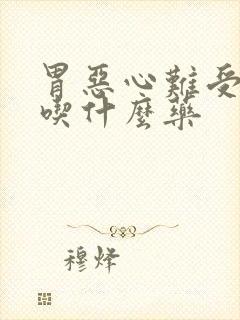 胃惡心難受
喫什麼藥
穆烽